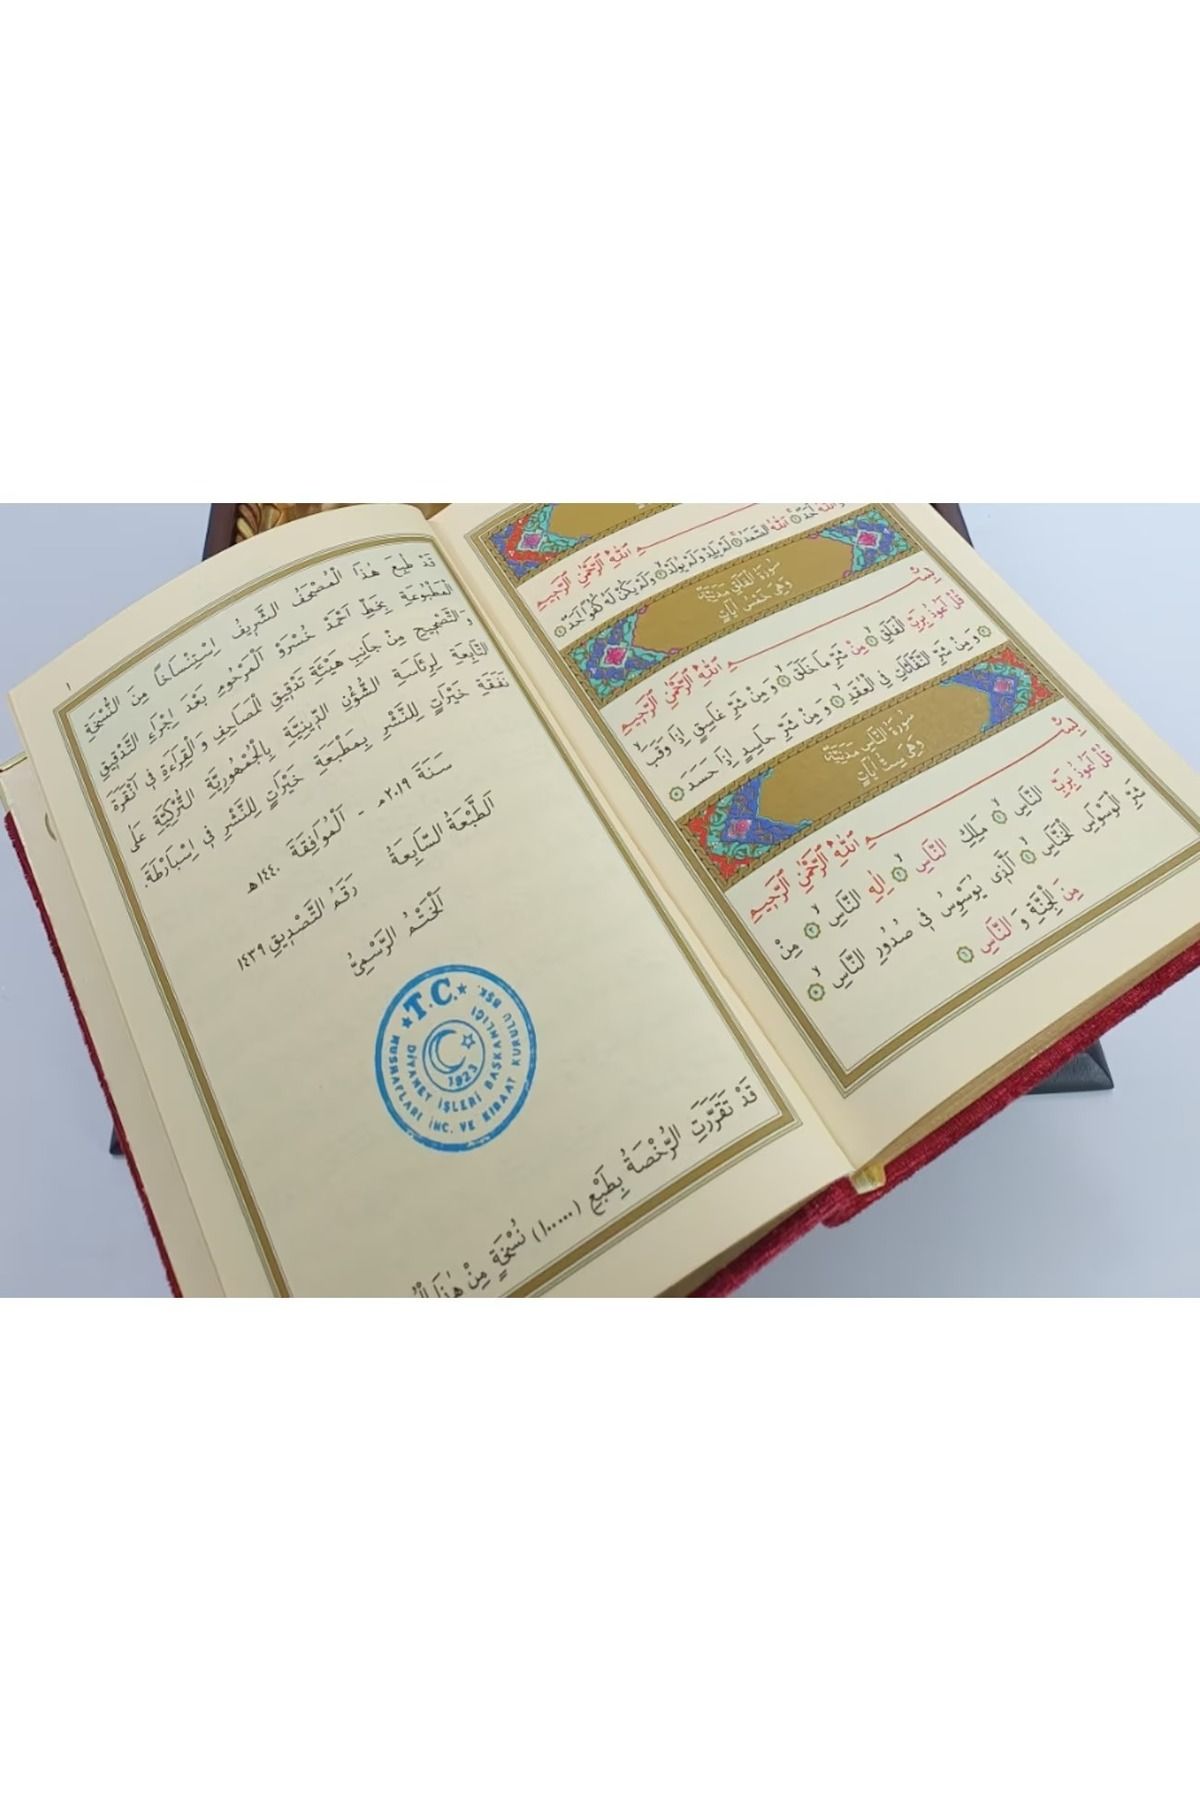 اَحَدٌ ۝١ اَللّٰهُ الصَّمَدُ ۝٢ لَمْ يَلِدْ وَلَمْ يُولَدْ ۝٣ وَلَمْ يَكُنْ لَهُ كُفُوًا اَحَدٌ ۝٤
سُورَةُ الْفَلَقِ مَدَنِيَّةٌ
وَهِيَ خَمْسُ اٰيَاتٍ
بِسْــــمِ اللّٰهِ الرَّحْمٰنِ الرَّحِيمِ
قُلْ اَعُوذُ بِرَبِّ الْفَلَقِ ۝١ مِنْ شَرِّ مَا خَلَقَ ۝٢ وَمِنْ شَرِّ غَاسِقٍ اِذَا وَقَبَ
۝٣ وَمِنْ شَرِّ النَّفَّاثَاتِ فِي الْعُقَدِ ۝٤ وَمِنْ شَرِّ حَاسِدٍ اِذَا حَسَدَ ۝٥
سُورَةُ النَّاسِ مَدَنِيَّةٌ
وَهِيَ سِتُّ اٰيَاتٍ
بِسْــــمِ اللّٰهِ الرَّحْمٰنِ الرَّحِيمِ
قُلْ اَعُوذُ بِرَبِّ النَّاسِ ۝١ مَلِكِ النَّاسِ ۝٢ اِلٰهِ النَّاسِ ۝٣ مِنْ
شَرِّ الْوَسْوَاسِ الْخَنَّاسِ ۝٤ اَلَّذِي يُوَسْوِسُ فِي صُدُورِ النَّاسِ ۝٥
مِنَ الْجِنَّةِ وَ النَّاسِ ۝٦
١
قَدْ طُبِعَ هٰذَا الْمُصْحَفُ الشَّرِيفُ اِسْتِنْسَاخًا مِنَ النُّسْخَةِ
الْمَطْبُوعَةِ بِخَطِّ اَحْمَدْ خُسْرَوْ الْمَرْحُومِ بَعْدَ اِجْرَاءِ التَّدْقِيقِ
وَ التَّصْحِيحِ مِنْ جَانِبِ هَيْئَةِ تَدْقِيقِ الْمَصَاحِفِ وَ الْقِرَاءَةِ فِي اَنْقَرَةَ
التَّابِعَةِ لِرِئَاسَةِ الشُّؤُنِ الدِّينِيَّةِ بِالْجُمْهُورِيَّةِ التُّرْكِيَّةِ عَلَى
نَفَقَةِ خَيْرَاتِ لِلنَّشْرِ بِمَطْبَعَةِ خَيْرَاتِ لِلنَّشْرِ فِي اِسْبَارْطَةَ.
سَنَةَ ٢٠١٩م - اَلْمُوَافِقَةَ ١٤٤٠هـ
اَلطَّبْعَةُ السَّابِعَةُ رَقَمُ التَّصْدِيقِ ١٤٣٩
اَلْخَتْمُ الرَّسْمِيُّ
★ T.C. ★
DİYANET İŞLERİ BAŞKANLIĞI
MUSHAFLARI İNC. VE KIRAAT KURULU BŞK.
1923
قَدْ تَقَرَّرَتِ الرُّخْصَةُ بِطَبْعِ (١٠٠٠٠٠) نُسْخَةٍ مِنْ هٰذَا